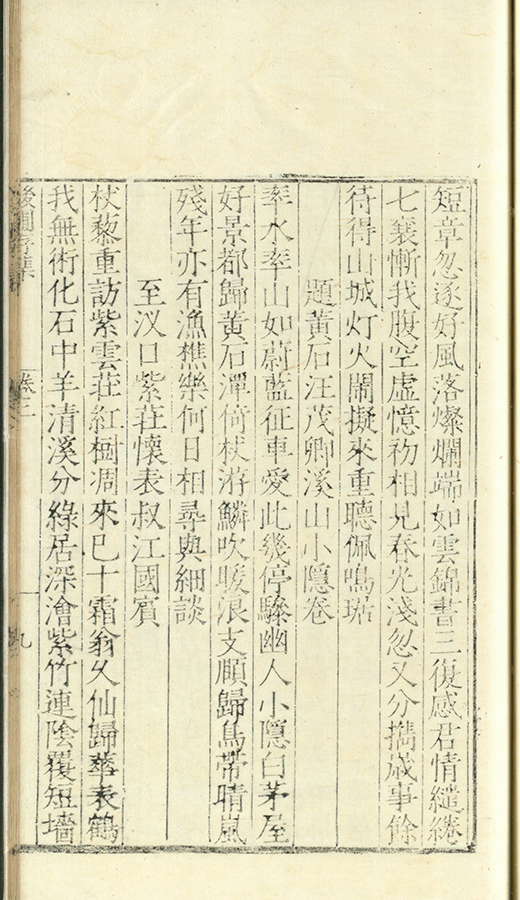 短章忽逐好風落燦爛端如雲錦書三復感君情繾綣
七襄慚我腹空虛憶初相見春光淺忽又分攜歲事餘
待得山城灯火閙擬來重聽佩鳴琚
題黃石汪茂卿溪山小隱卷
率水率山如蔚藍征車愛此幾停驂幽人小隱白茅屋
好景都歸黃石潭倚杖游鱗吹暖浪支頤歸鳥帶晴嵐
殘年亦有漁樵樂何日相尋與細談
至汊口紫莊懷表叔江國賓
杖藜重訪紫雲莊紅樹凋來已十霜翁乆仙歸華表鶴
我無術化石中羊清溪分綠居深澮紫竹連陰覆短墻
卷二
九